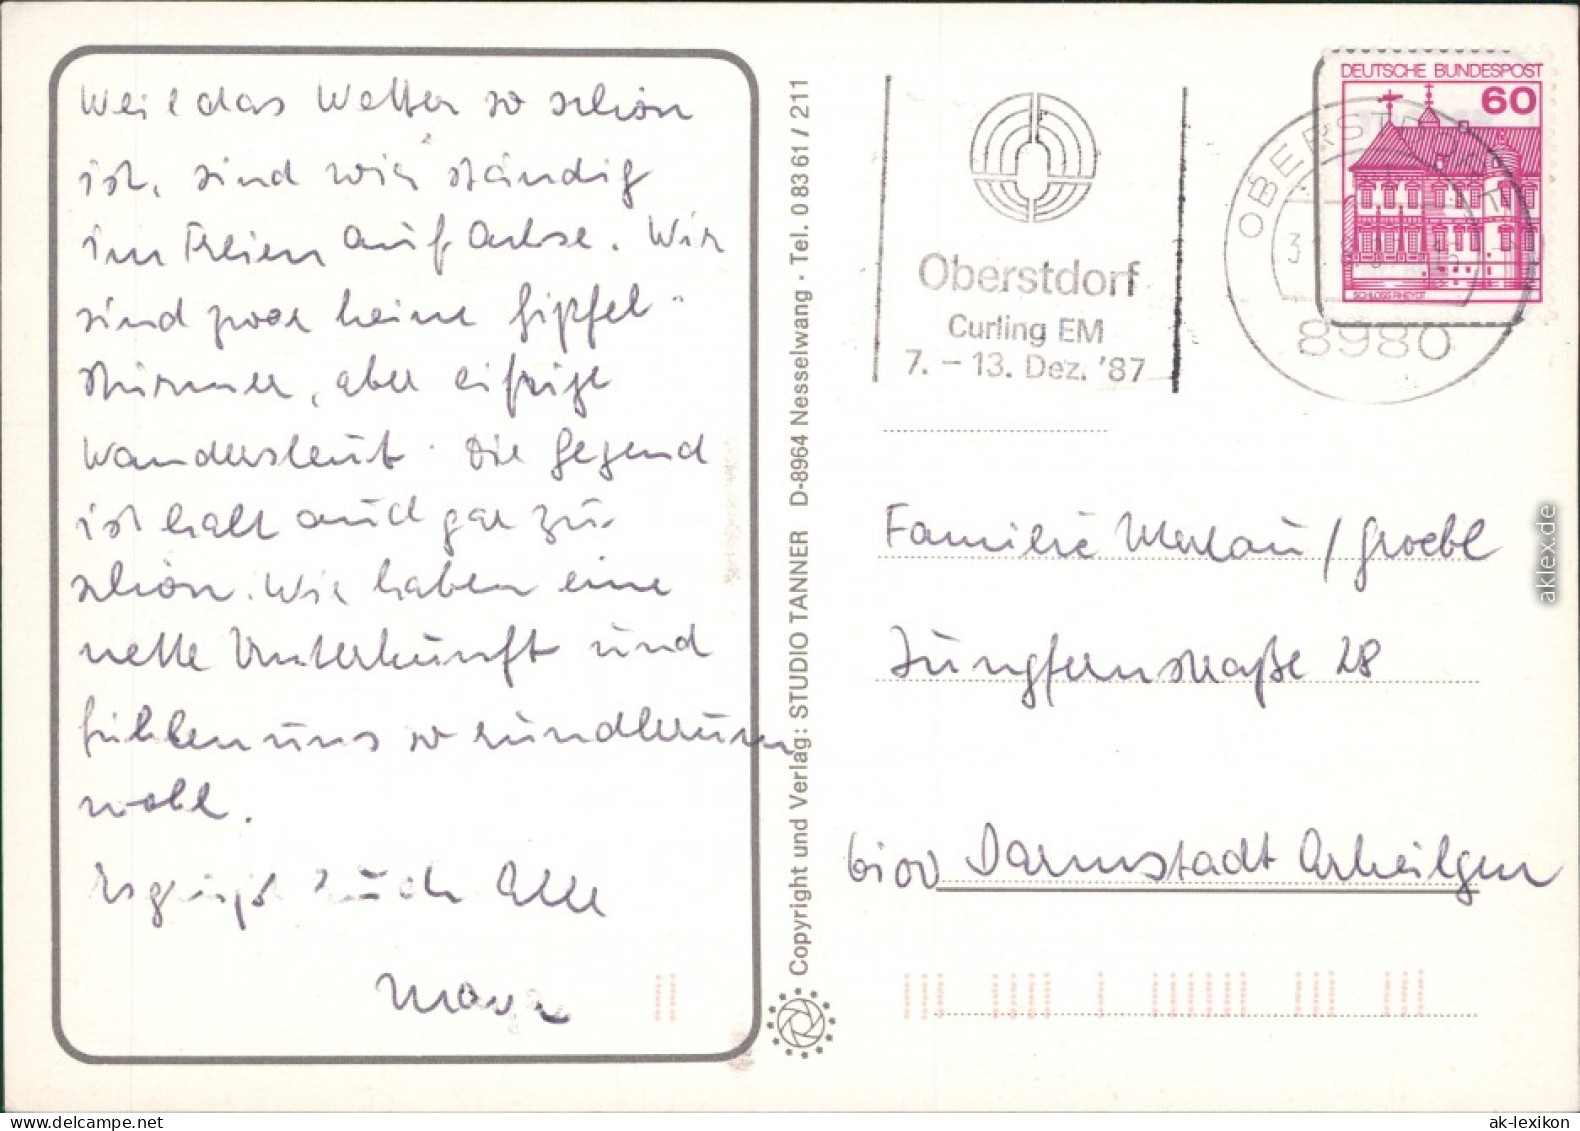 Weil das Wetter so schön
ist, sind wir ständig
im Freien auf Achse. Wir
sind zwar keine Gipfel-
stürmer, aber eifrige
Wandersleut. Die Gegend
ist halt auch gar zu
schön. Wir haben eine
nette Unterkunft und
fühlen uns so rundherum
wohl.
Es grüßt Euch Alle
Copyright und Verlag: STUDIO TANNER D-8964 Nesselwang · Tel. 0 83 61 / 211
Oberstdorf
Curling EM
7. – 13. Dez. '87
OBERSTDORF
8980
DEUTSCHE BUNDESPOST
60
SCHLOSS RHEYDT
Familie Merlau / Groebl
Jungfernstraße 28
6100 Darmstadt Arheilgen
aklex.de
ak-lexikon.de
ak-lexikon